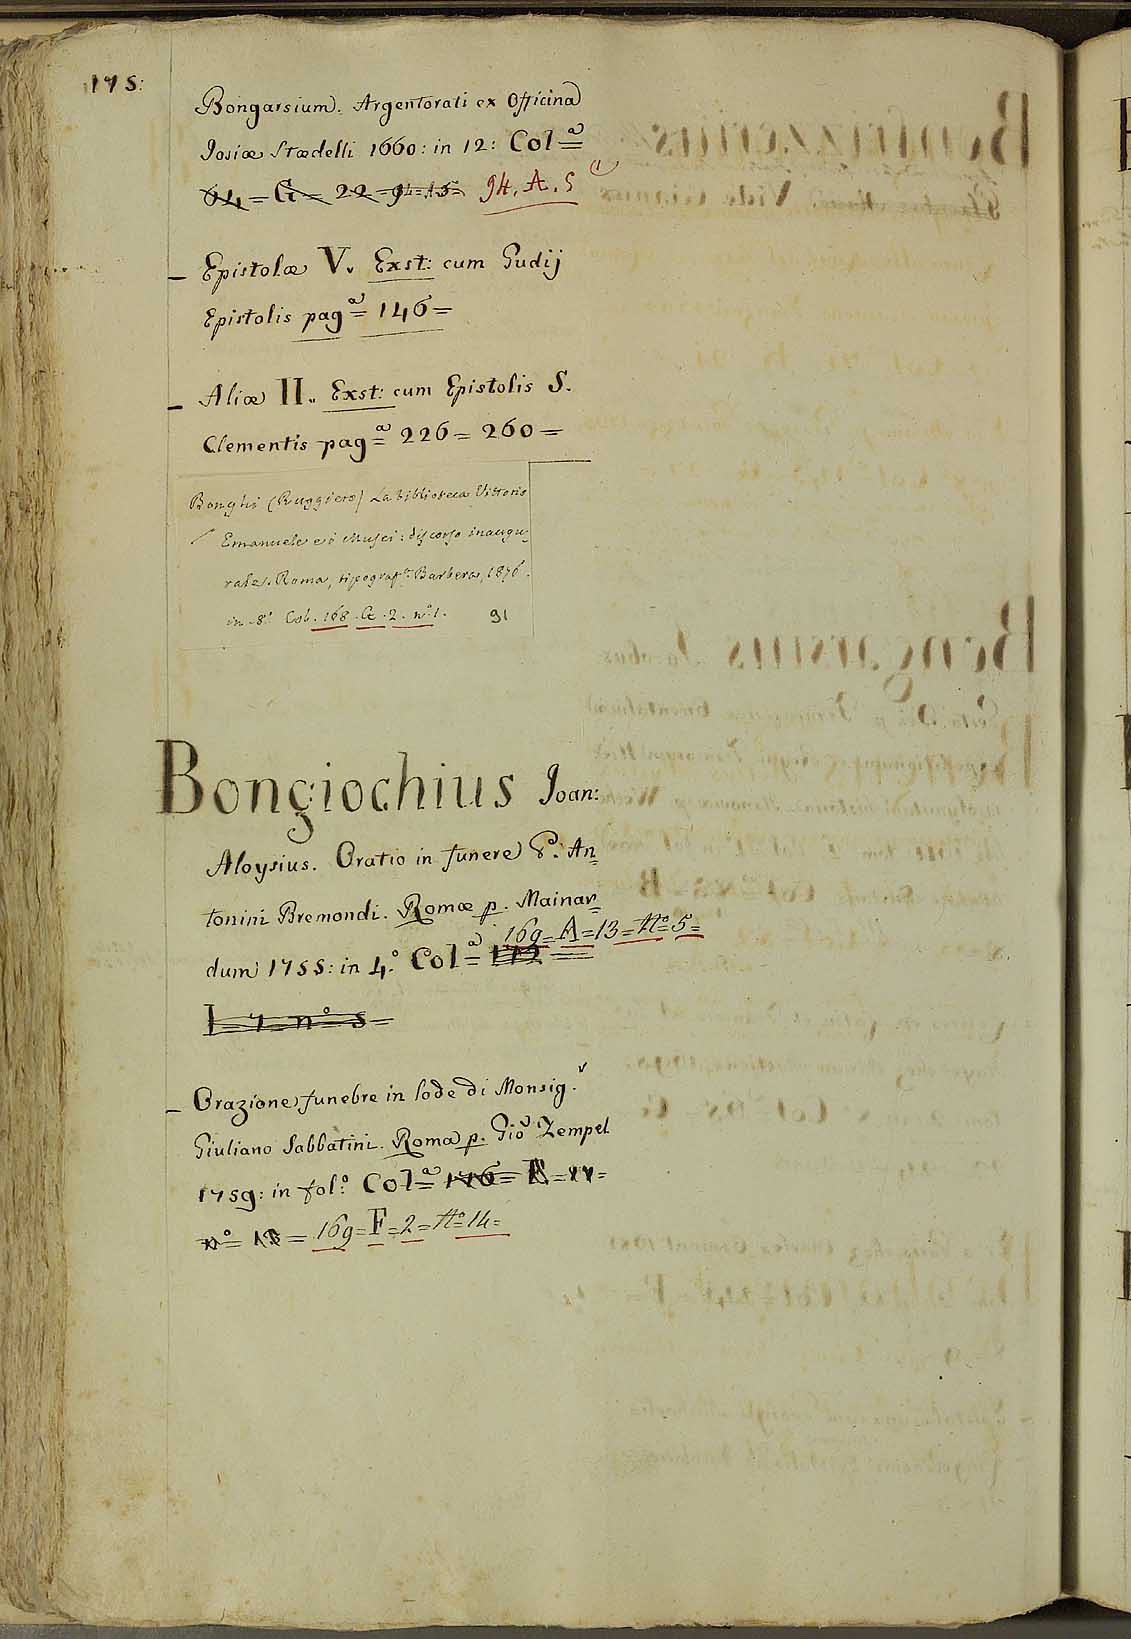 175:
Bongarsium. Argentorati ex Officina
Josiæ Stædelli 1660: in 12: Col.ª=
64=G=22=94=A.5= 94.A.5
_ Epistolæ V. Exst: cum Gudij
Epistolis pag.ª= 146=
_ Aliæ II. Exst: cum Epistolis S.
Clementis pag.ª= 226= 260=
Bonghi (Ruggiero) La biblioteca Vittorio
Emanuele e i Musei: discorso inaugu-
rale. Roma, tipograf.ª Barbera, 1876.
in-8.º Col. 168. G. 2. nº 1. 91
Bongiochius Joan:
Aloysius. Oratio in funere P. An=
tonini Bremondi. Romæ p. Mainar=
dum 1755: in 4.º Col.ª= 169=A=13=Nº=5=
I 7 nº 5=
_ Orazione funebre in lode di Monsig.r
Giuliano Sabbatini. Roma p. Gio Zempel
1759: in fol.º Col.ª= 176= =17=
nº= 18= 169=F=2=Nº=14=